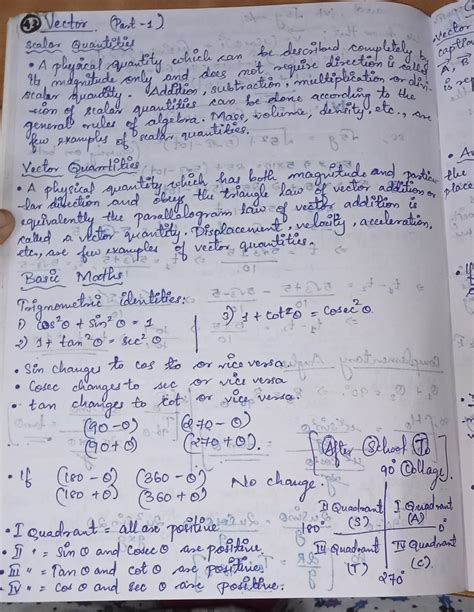 43 Vector (Part-1)
Scalar Quantities
• A physical quantity which can be described completely by
its magnitude only and does not require direction is called
scalar quantity. Addition, subtraction, multiplication or divi-
-sion of scalar quantities can be done according to the
general rules of algebra. Mass, volume, density, etc., are
few examples of scalar quantities.
Vector Quantities
• A physical quantity which has both magnitude and particu-
-lar direction and obeys the triangle law of vector addition or
equivalently the parallelogram law of vector addition is
called a vector quantity. Displacement, velocity, acceleration,
etc., are few examples of vector quantities.
Basic Maths
Trignometric identities:
1) cos²θ + sin²θ = 1
3) 1 + cot²θ = cosec²θ
2) 1 + tan²θ = sec²θ
• Sin changes to cos or vice versa
• Cosec changes to sec or vice versa
• tan changes to cot or vice versa
(90-θ) (270-θ)
(90+θ) (270+θ).
[After School To
90° Collage]
• If (180-θ) (360-θ) No change.
(180+θ) (360+θ)
II Quadrant (S) I Quadrant (A)
180° 0°
III Quadrant (T) IV Quadrant (C).
270°
• I Quadrant = all are positive
• II " = Sin θ and Cosec θ are positive
• III " = Tan θ and cot θ are positive
• IV " = cos θ and sec θ are positive.
vector
A, B
is
the
place
• If